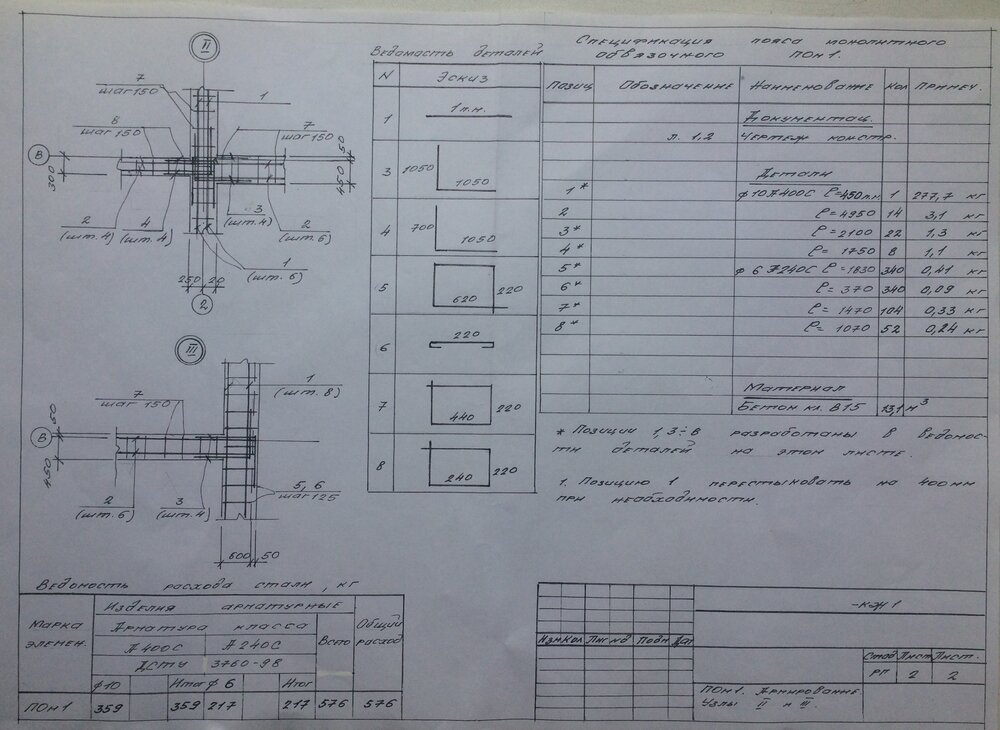 II
7
шаг 150
1
8
шаг 150
7
шаг 150
В
300
50
450
2
(шт. 4)
4
(шт. 4)
3
(шт. 4)
2
(шт. 6)
1
(шт. 6)
250
20
2
III
7
шаг 150
1
(шт. 8)
В
50
450
2
(шт. 6)
3
(шт. 4)
5, 6
шаг 125
600
50
Ведомасть деталей
N Эскиз
1 1 п.м.
3 1050 1050
4 700 1050
5 620 220
6 220
7 440 220
8 240 220
Спецификация пояса монолитного
обвязочного ПОн 1.
Позиц Обозначение Наименование Кол Примеч.
Документац.
л. 1,2 Чертеж констр.
Детали
1* ф10А400С ℓ=450п.м. 1 277,7 кг
2 ℓ=4950 14 3,1 кг
3* ℓ=2100 22 1,3 кг
4* ℓ= 1750 8 1,1 кг
5* ф 6 А240С ℓ=1830 340 0,41 кг
6* ℓ= 370 340 0,09 кг
7* ℓ= 1470 104 0,33 кг
8* ℓ= 1070 52 0,24 кг
Материал
Бетон кл. В15 13,1 м³
* Позиции 1, 3÷8 разработаны в ведомос-
ти деталей на этом листе.
1. Позицию 1 перестыковать на 400мм
при необходимости.
Ведомость расхода стали, кг
Марка
элемен.
Изделия арматурные
Арматура класса
А400С А240С
ДСТУ 3760-98
Всего
Общий
расход
ф10 Итог ф 6 Итог
ПОн1 359 359 217 217 576 576
-КЖ1
Изм Кол. Лист Nд Подп Дат
Стад Лист Лист.
РП 2 2
ПОн1. Армирование.
Узлы II и III.